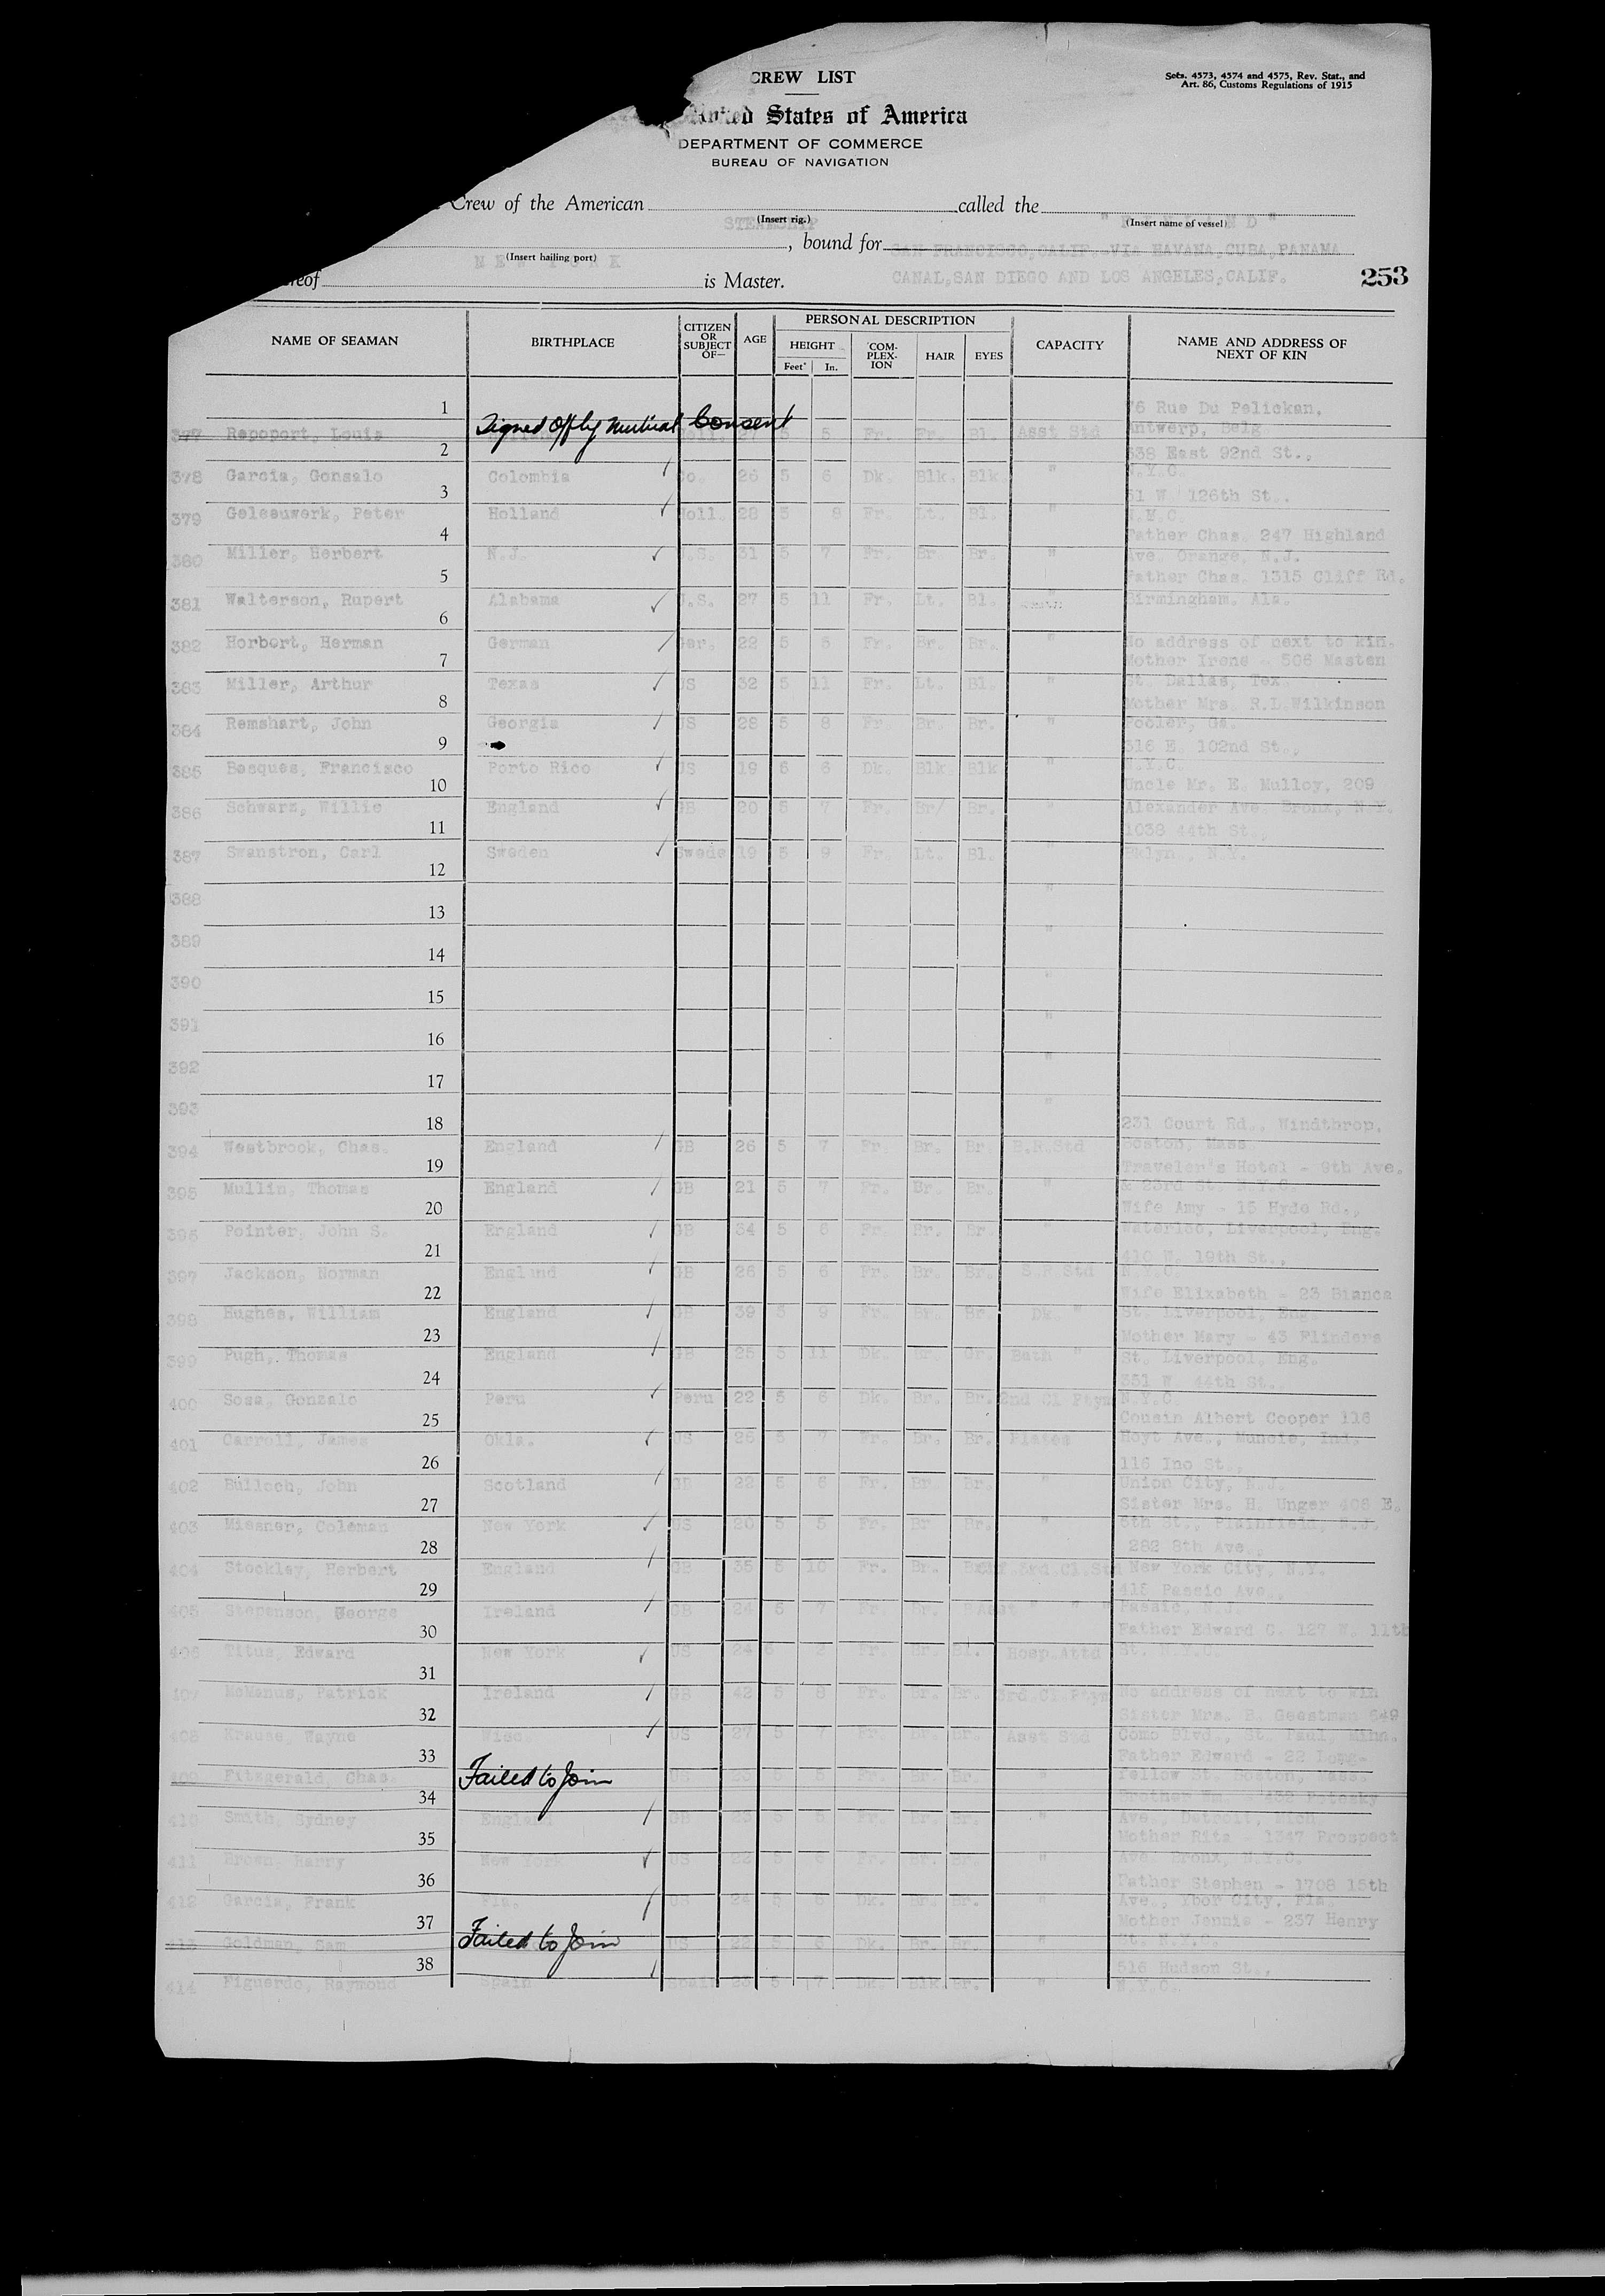 CREW LIST
Sets. 4573, 4574 and 4575, Rev. Stat., and
Art. 86, Customs Regulations of 1915
United States of America
DEPARTMENT OF COMMERCE
BUREAU OF NAVIGATION
Crew of the American called the
STEAMSHIP (Insert rig.) (Insert name of vessel)
, bound for SAN FRANCISCO, CALIF. VIA HAVANA, CUBA, PANAMA
(Insert hailing port) NEW YORK
reof is Master. CANAL, SAN DIEGO AND LOS ANGELES, CALIF. 253
NAME OF SEAMAN BIRTHPLACE CITIZEN OR SUBJECT OF— AGE PERSONAL DESCRIPTION HEIGHT Feet In. COM-PLEX-ION HAIR EYES CAPACITY NAME AND ADDRESS OF NEXT OF KIN
1 76 Rue Du Pelickan,
377 Rapoport, Louis Signed off by mutual Consent 27 5 5 Fr. Br. Bl. Asst Std Antwerp, Belg
2 338 East 92nd St.,
378 Garcia, Gonzalo Colombia Co. 26 5 6 Dk. Blk. Blk. " N.Y.C.
3 51 W. 126th St..
379 Geleeuwerk, Peter Holland Holl. 28 5 8 Fr. Lt. Bl. " N.Y.C.
4 Father Chas. 247 Highland
380 Miller, Herbert N.J. U.S. 31 5 7 Fr. Br. Br. " Ave. Orange, N.J.
5 Father Chas. 1315 Cliff Rd.
381 Walterson, Rupert Alabama U.S. 27 5 11 Fr. Lt. Bl. " Birmingham, Ala.
6
382 Horbert, Herman German Ger. 22 5 5 Fr. Br. Br. " No address of next to kin.
7 Mother Irene - 506 Masten
383 Miller, Arthur Texas US 32 5 11 Fr. Lt. Bl. " St. Dallas, Tex.
8 Mother Mrs. R.L.Wilkinson
384 Remshart, John Georgia US 28 5 8 Fr. Br. Br. " Pooler, Ga.
9 316 E. 102nd St.,
385 Basques, Francisco Porto Rico US 19 5 6 Dk. Blk Blk " N.Y.C.
10 Uncle Mr. E. Mulloy, 209
386 Schwarz, Willie England GB 20 5 7 Fr. Br/ Br. " Alexander Ave. Bronx, N.Y.
11 1038 44th St.,
387 Swanstron, Carl Sweden Swede 19 5 9 Fr. Lt. Bl. " Bklyn., N.Y.
12
388 "
13
389 "
14
390 "
15
391 "
16
392 "
17
393 "
18 231 Court Rd., Windthrop,
394 Westbrook, Chas. England GB 26 5 7 Fr. Br. Br. B.R.Std Boston, Mass.
19 Traveler's Hotel - 9th Ave.
395 Mullin, Thomas England GB 21 5 7 Fr. Br. Br. " & 23rd St. N.Y.C.
20 Wife Amy - 15 Hyde Rd.,
396 Pointer, John S. England GB 34 5 8 Fr. Br. Br. " Waterloo, Liverpool, Eng.
21 410 W. 19th St.,
397 Jackson, Norman England GB 26 5 6 Fr. Br. Br. S.R.Std N.Y.C.
22 Wife Elixabeth - 23 Bianca
398 Hughes, William England GB 39 5 9 Fr. Br. Br. Dk. " St. Liverpool, Eng.
23 Mother Mary - 43 Flinders
399 Pugh, Thomas England GB 25 5 11 Dk. Br. Gr. Bath " St. Liverpool, Eng.
24 351 W. 44th St.,
400 Sosa, Gonzalo Peru Peru 22 5 6 Dk. Br. Br. 2nd Cl Ptym N.Y.C.
25 Cousin Albert Cooper 116
401 Carroll, James Okla. US 26 5 7 Fr. Br. Br. Plates Hoyt Ave., Muncie, Ind.
26 116 Ino St.,
402 Bulloch, John Scotland GB 22 5 6 Fr. Br. Br. " Union City, N.J.
27 Sister Mrs. H. Unger 408 E.
403 Miesner, Coleman New York US 20 5 5 Fr. Br Br. " 6th St., Plainfield, N.J.
28 282 8th Ave.,
404 Stockley, Herbert England GB 35 5 10 Fr. Br. 3rd Cl.Std New York City, N.Y.
29 415 Passic Ave.,
405 Stepenson, George Ireland GB 24 5 7 Fr. Br. Asst " " Passic, N.J.
30 Father Edward C. 127 W. 11th
406 Titus, Edward New York US 24 6 2 Fr. Br. Bl. Hosp.Attd St. N.Y.C.
31
407 McManus, Patrick Ireland GB 42 5 8 Fr. Br. Br. 3rd Cl Ptym No address of next to kin
32 Sister Mrs. B. Geestman 649
408 Krause, Wayne Wisc. US 27 5 7 Fr. Br. Br. Asst Std Como Blvd., St. Paul, Minn.
33 Father Edward - 22 Long-
409 Fitzgerald, Chas. Failed to Join US 5 5 Fr. Br. Br. " fellow St. Boston, Mass.
34 Brother Wm. - 432 Potosky
410 Smith, Sydney England GB 23 5 5 Fr. Br. Br. " Ave., Detroit, Mich.
35 Mother Rita - 1347 Prospect
411 Brown, Harry New York US 22 5 6 Fr. Br. Br. " Ave. Bronx, N.Y.C.
36 Father Stephen - 1708 15th
412 Garcia, Frank Fla. US 24 5 6 Dk. Br. Br. " Ave., Ybor City, Fla.
37 Mother Jennie - 237 Henry
413 Goldman, Sam Failed to Join US 22 5 6 Dk. Br. Br. " St. N.Y.C.
38 516 Hudson St.,
414 Figuerdo, Raymond Spain Spain 5 7 Dk. Blk Br. " N.Y.C.